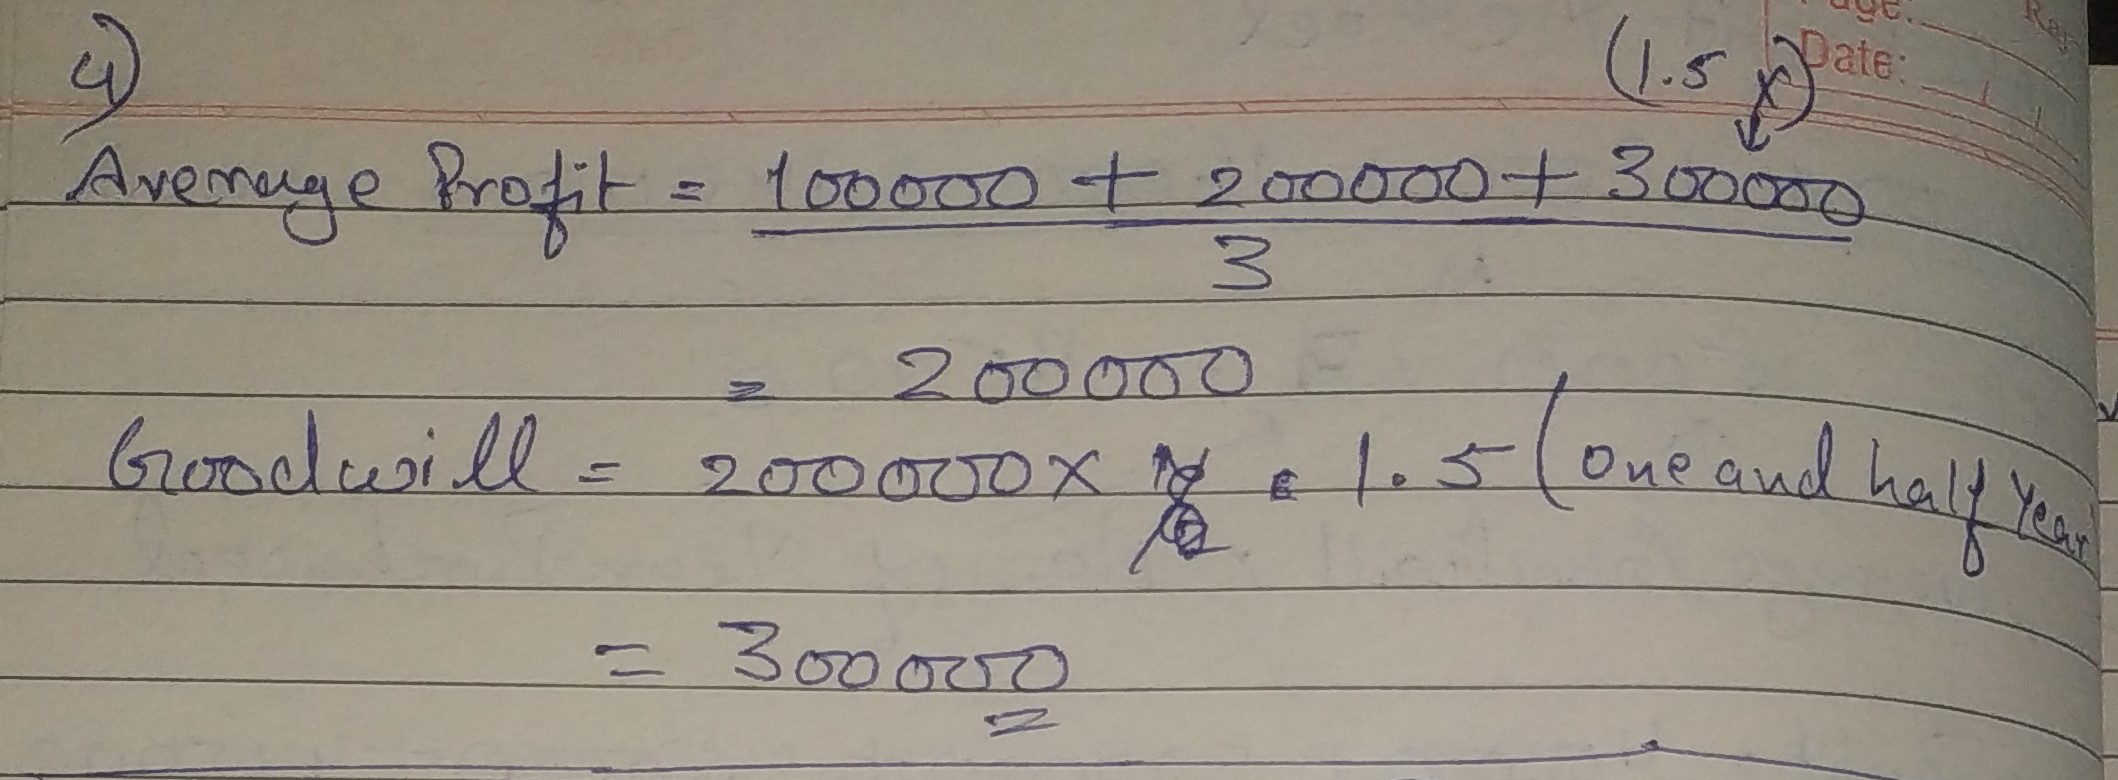 Page:
Date:
4)
(1.5 x)
Average Profit = 100000 + 200000 + 300000
3
= 200000
Goodwill = 200000 x = 1.5 (one and half Year
= 300000
=